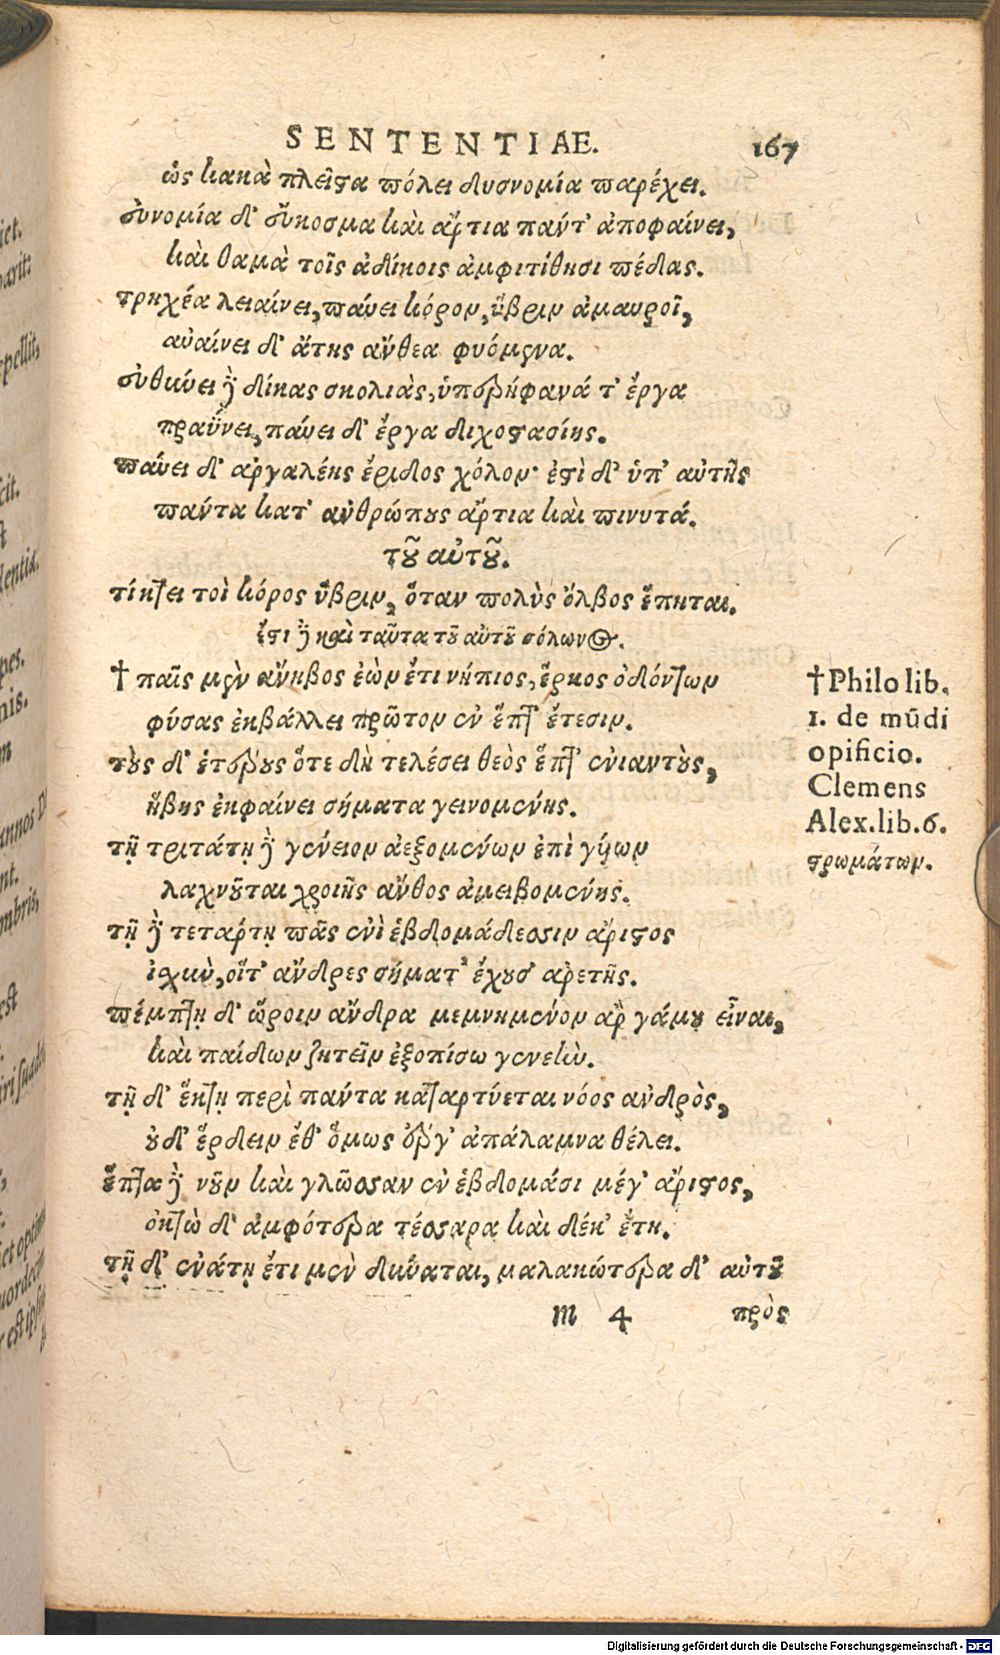 SENTENTIAE. 167
ὡς κακὰ πλεῖστα πόλει δυσνομία παρέχει.
εὐνομία δ' εὔκοσμα καὶ ἄρτια πάντ' ἀποφαίνει,
καὶ θαμὰ τοῖς ἀδίκοις ἀμφιτίθησι πέδας.
τρηχέα λειαίνει, παύει κόρον, ὕβριν ἀμαυροῖ,
αὐαίνει δ' ἄτης ἄνθεα φυόμενα.
εὐθύνει δὲ δίκας σκολιὰς, ὑπερήφανά τ' ἔργα
πραΰνει, παύει δ' ἔργα διχοστασίης.
παύει δ' ἀργαλέης ἔριδος χόλον· ἐστὶ δ' ὑπ' αὐτῆς
πάντα κατ' ἀνθρώπους ἄρτια καὶ πινυτά.
τοῦ αὐτοῦ.
τίκτει τοὶ κόρος ὕβριν, ὅταν πολὺς ὄλβος ἕπηται.
ἔστι δὲ καὶ ταῦτα τοῦ αὐτοῦ σόλωνος.
† παῖς μὲν ἄνηβος ἐὼν ἔτι νήπιος, ἕρκος ὀδόντων
φύσας ἐκβάλλει πρῶτον ἐν ἕπτ' ἔτεσιν.
τοὺς δ' ἑτέρους ὅτε δὴ τελέσει θεὸς ἕπτ' ἐνιαυτοὺς,
ἥβης ἐκφαίνει σήματα γεινομένης.
τῇ τριτάτῃ δὲ γένειον ἀεξομένων ἐπὶ γύων
λαχνοῦται χροιῆς ἄνθος ἀμειβομένης.
τῇ δὲ τετάρτῃ πᾶς ἐνὶ ἑβδομάδεσσιν ἄριστος
ἰσχὺν, οἵτ' ἄνδρες σήματ' ἔχουσ' ἀρετῆς.
πέμπτῃ δ' ὥροιν ἄνδρα μεμνημένον ἂρ γάμου εἶναι,
καὶ παίδων ζητεῖν ἐξοπίσω γενεὴν.
τῇ δ' ἕκτῃ περὶ πάντα καταρτύεται νόος ἀνδρὸς,
οὐδ' ἔρδειν ἔθ' ὅμως ἔργ' ἀπάλαμνα θέλει.
ἕπτα δὲ νοῦν καὶ γλῶσσαν ἐν ἑβδομάσι μέγ' ἄριστος,
ὀκτὼ δ' ἀμφότερα τέσσαρα καὶ δέκ' ἔτη.
τῇ δ' ἐνάτῃ ἔτι μὲν δύναται, μαλακώτερα δ' αὐτοῦ
m 4 πρὸς
† Philo lib.
1. de mūdi
opificio.
Clemens
Alex. lib. 6.
στρωμάτων.
Digitalisierung gefördert durch die Deutsche Forschungsgemeinschaft - DFG